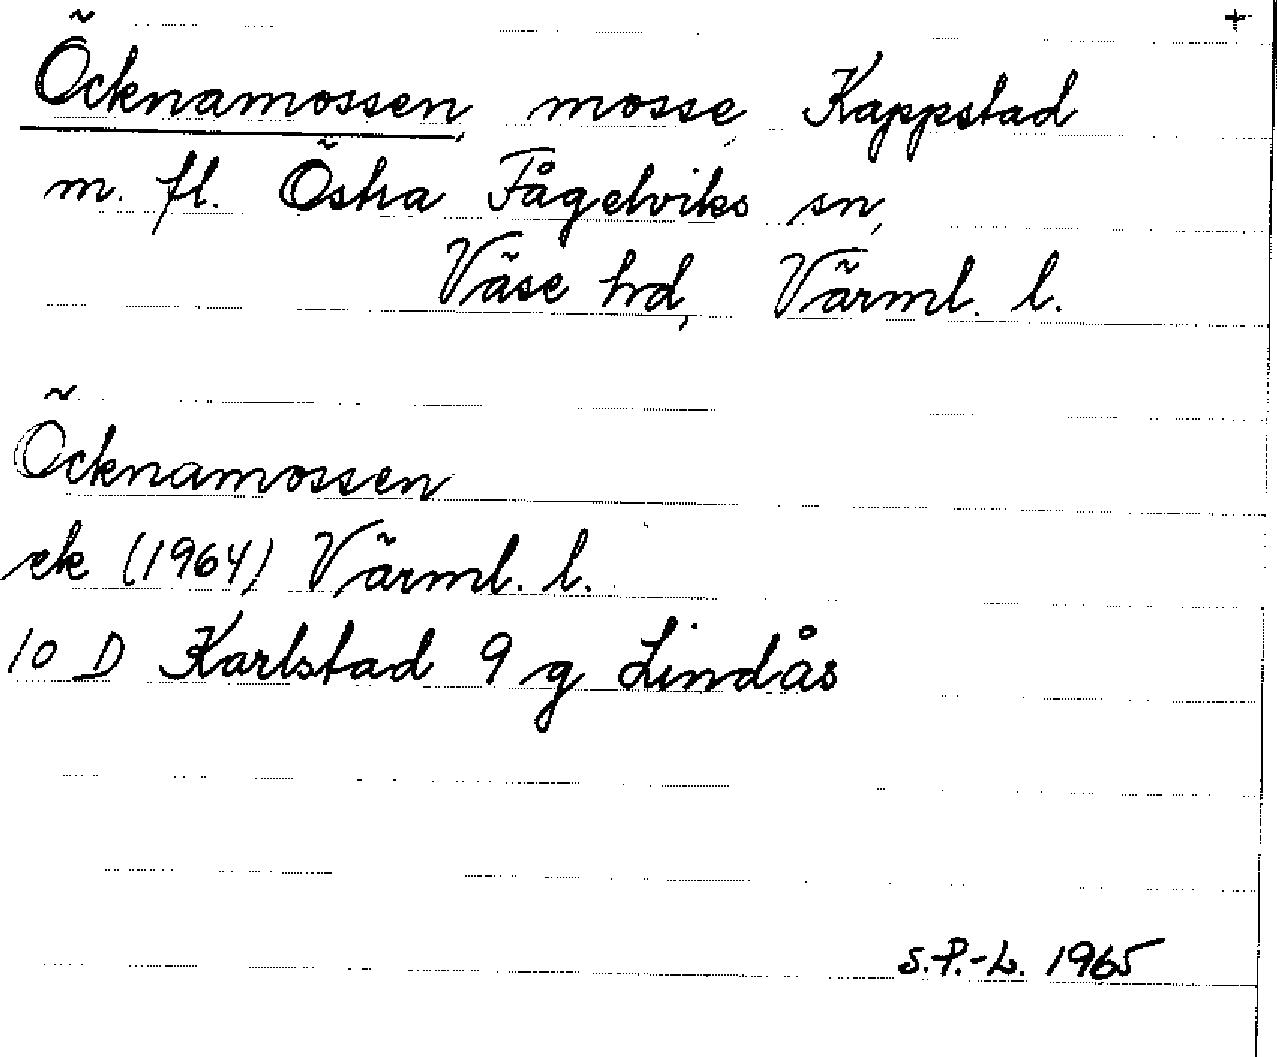 +
Öcknamossen, mosse, Kappstad
m. fl. Östra Fågelviks sn,
Väse hd, Värml. l.
Öcknamossen
ek (1964) Värml. l.
10 D Karlstad 9 g Lindås
S.P.-L. 1965